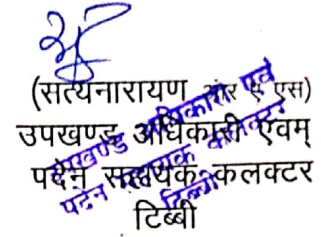 (सत्यनारायण आर ए एस)
उपखण्ड अधिकारी एवम्
पदेन सहायक कलक्टर
टिब्बी
उपखण्ड अधिकारी एवं
पदेन सहायक कलक्टर
टिब्बी